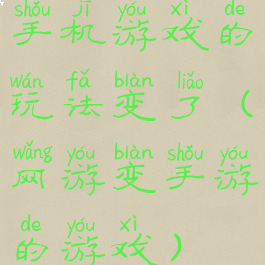 shǒu jī yóu xì de
手机游戏的
wán fǎ biàn liǎo
玩法变了（
wǎng yóu biàn shǒu yóu
网游变手游
de yóu xì
的游戏）